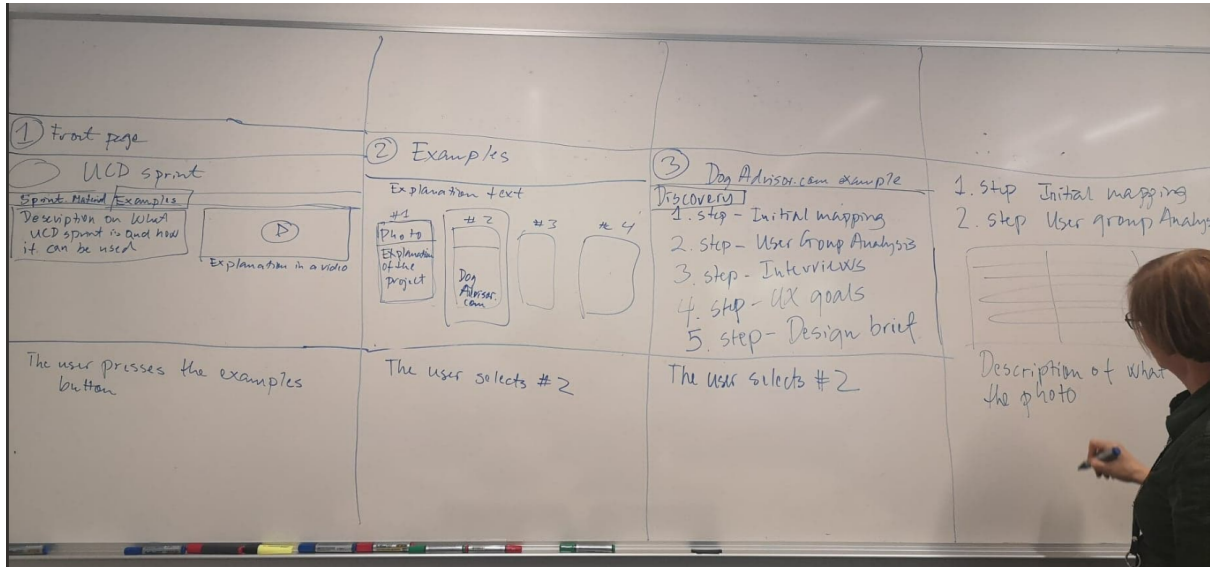 1 Front page
UCD sprint
Sprint Material Examples
Description on what
UCD sprint is and how
it can be used
Explanation in a video
The user presses the examples
button
2 Examples
Explanation text
#1
Photo
Explanation
of the
project
#2
Dog
Advisor.
com
#3
#4
The user selects #2
3 Dog Advisor.com example
Discovery
1. step - Initial mapping
2. step - User Group Analysis
3. step - Interviews
4. step - UX goals
5. step - Design brief
The user selects #2
1. step Initial mapping
2. step User group Analys
Description of what
the photo